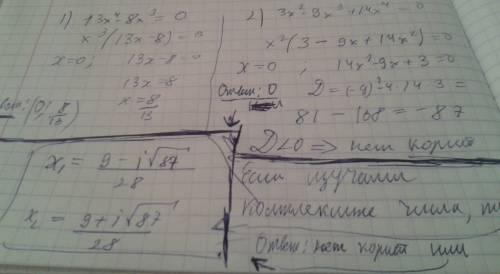 1) 13x⁴-8x³=0
x³(13x-8)=0
x=0; 13x-8=0
13x=8
x=8/13
(0; 8/13)
2) 3x²-9x³+14x⁴=0
x²(3-9x+14x²)=0
x=0; 14x²-9x+3=0
Ответ: 0
D=(-9)²-4·14·3=
81-168=-87
D<0 => нет корней
x₁= 9-i√87/28
x₂= 9+i√87/28
Если изучали
комплексные числа, то
Ответ: нет корней или